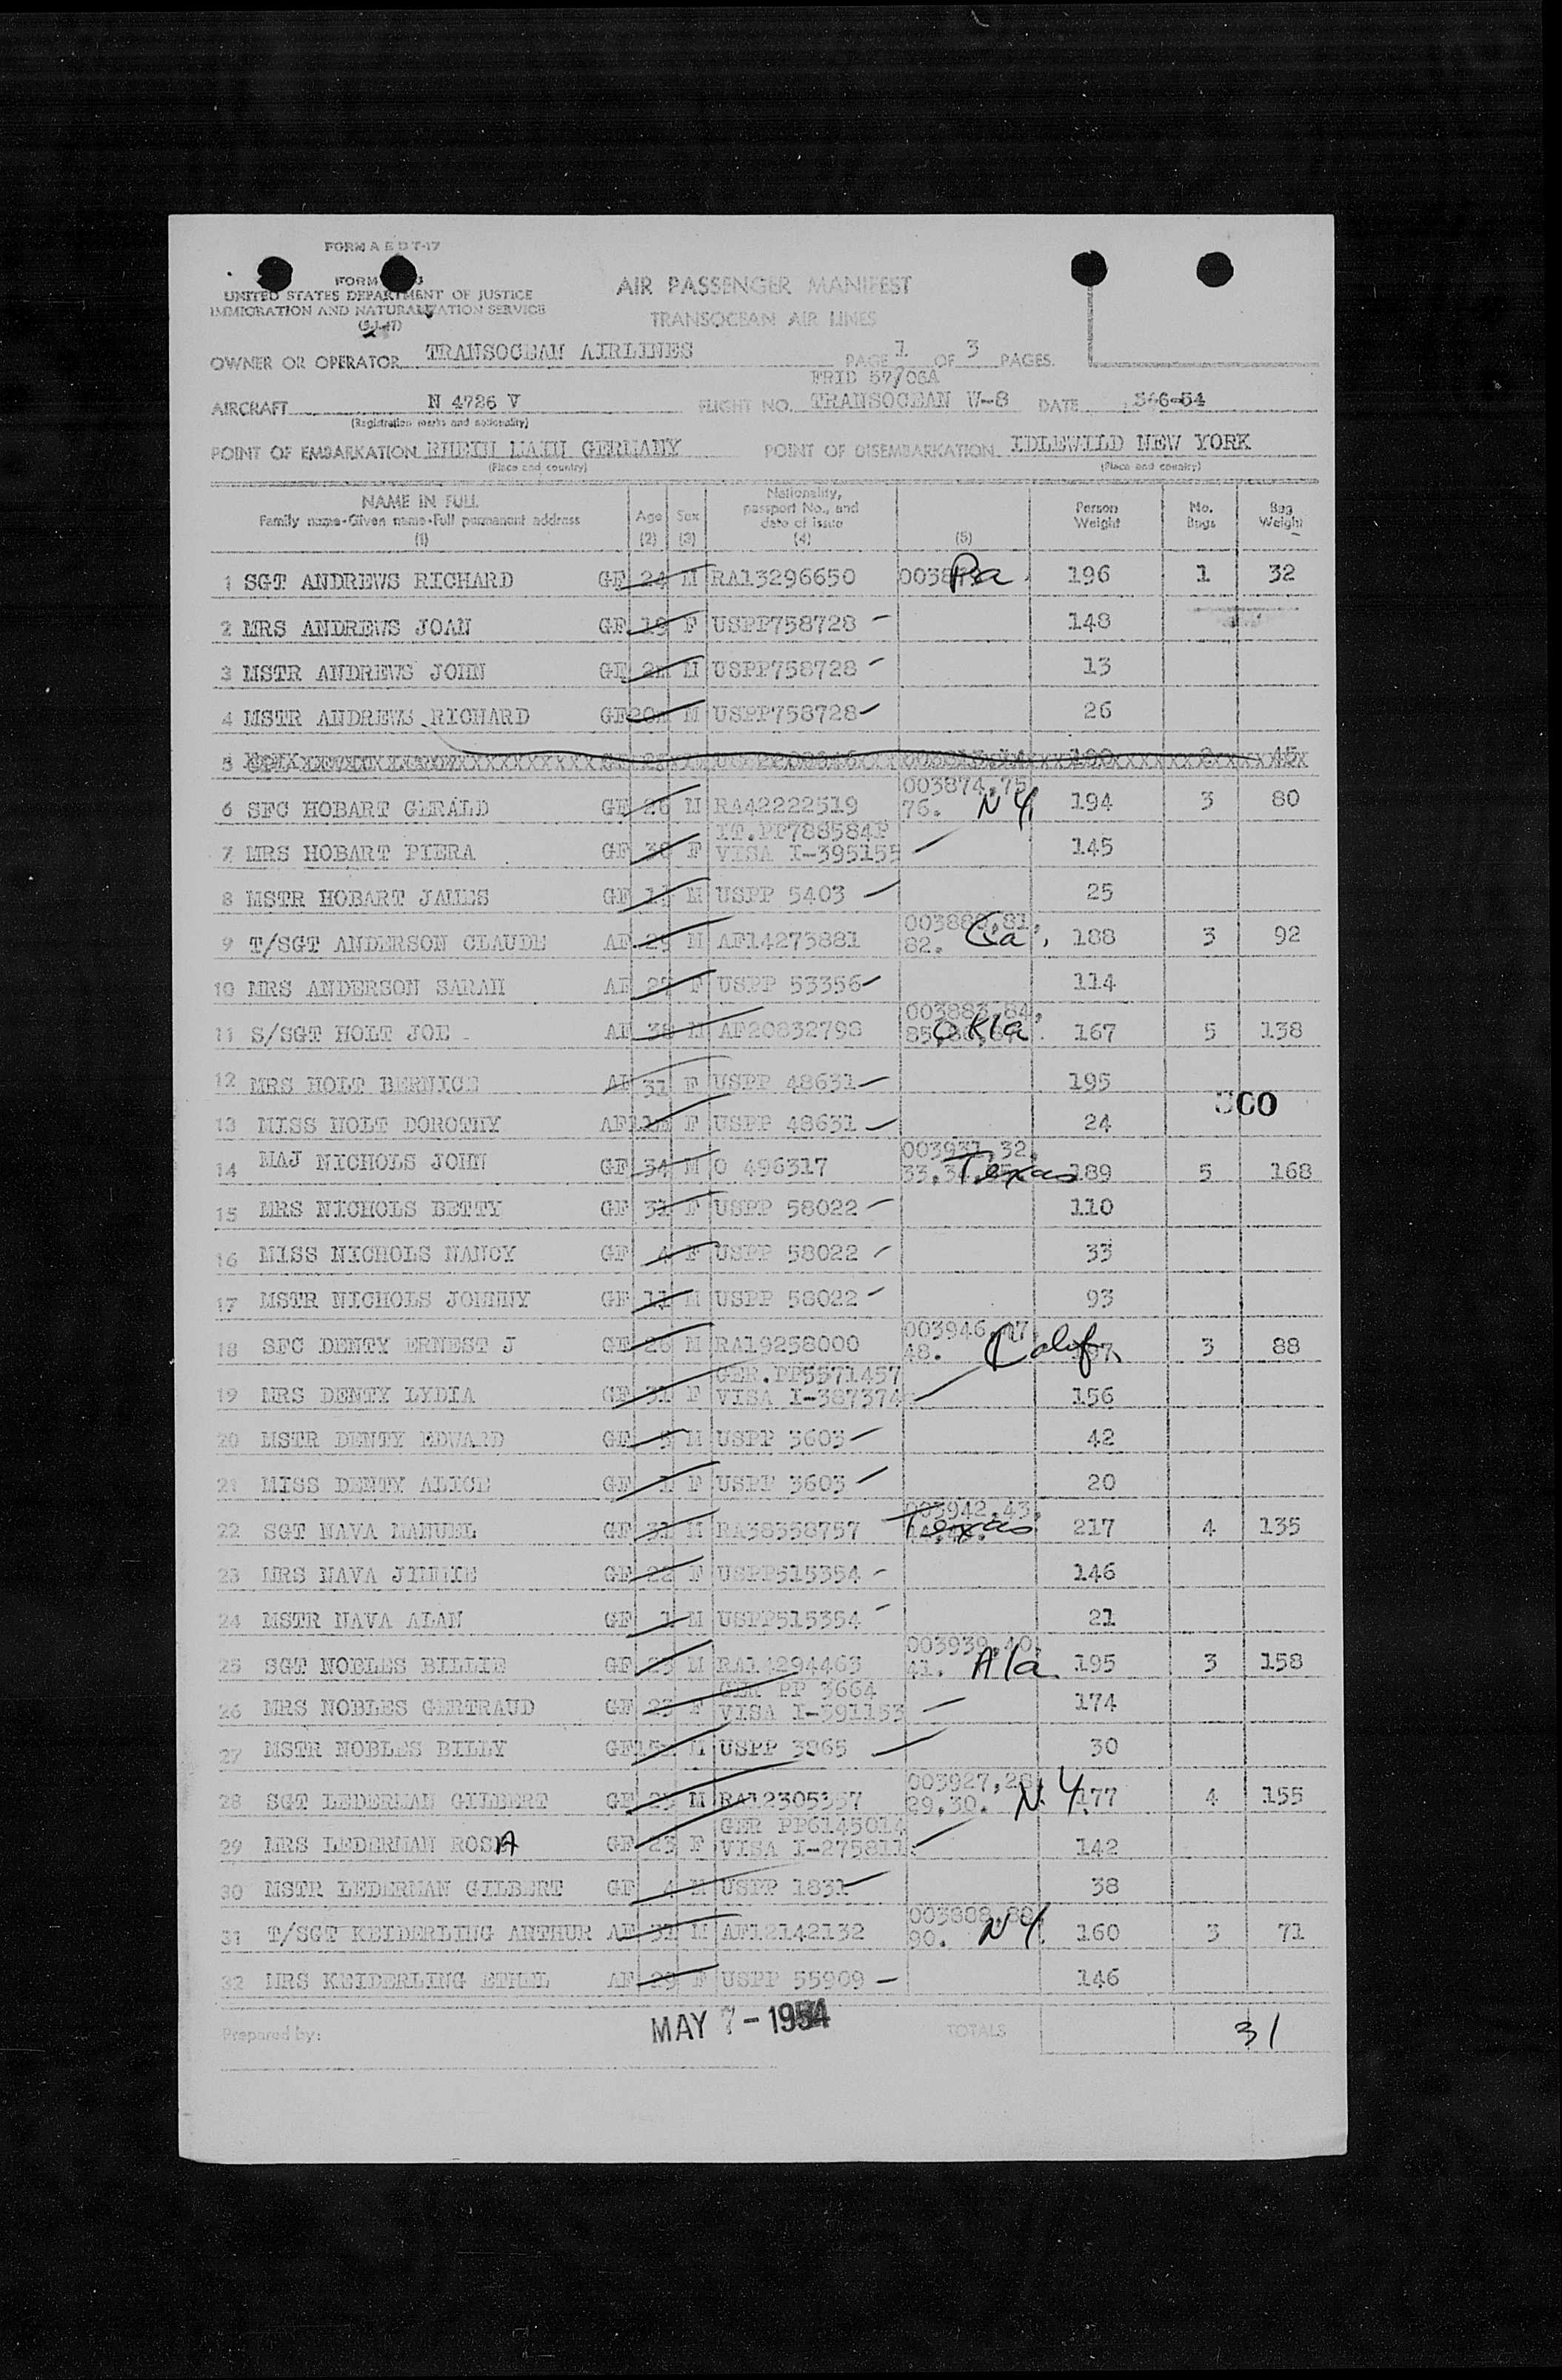 FORM A E D T-17
FORM
UNITED STATES DEPARTMENT OF JUSTICE
IMMIGRATION AND NATURALIZATION SERVICE
AIR PASSENGER MANIFEST
TRANSOCEAN AIR LINES
OWNER OR OPERATOR TRANSOCEAN AIRLINES PAGE 1 OF 3 PAGES.
FRID 57/08A
AIRCRAFT N 4726 V FLIGHT NO. TRANSOCEAN W-8 DATE 5-6-54
(Registration marks and nationality)
POINT OF EMBARKATION RHEIN MAIN GERMANY POINT OF DISEMBARKATION IDLEWILD NEW YORK
(Place and country) (Place and country)
NAME IN FULL Family name-Given name-Full permanent address (1) Age (2) Sex (3) Nationality, passport No., and date of issue (4) (5) Person Weight No. Bags Bag Weight
1 SGT ANDREWS RICHARD GF 24 M RA13296650 Pa. 196 1 32
2 MRS ANDREWS JOAN GF 19 F USPP758728 148
3 MSTR ANDREWS JOHN GF 2M M USPP758728 13
4 MSTR ANDREWS RICHARD GF 20M M USPP758728 26
5
6 SFC HOBART GERALD GF 26 M RA42222519 003874,75, 76. N Y. 194 3 80
7 MRS HOBART PIERA GF 36 F IT.PP788584P VISA I-395155 145
8 MSTR HOBART JAMES GF M USPP 5403 25
9 T/SGT ANDERSON CLAUDE AF 25 M AF14273881 003880,81, 82. Ga. 188 3 92
10 MRS ANDERSON SARAH AF 27 F USPP 53356 114
11 S/SGT HOLT JOE AF 38 M AF20832798 003883,84, Okla. 167 5 138
12 MRS HOLT BERNICE AF 31 F USPP 48631 195
300
13 MISS HOLT DOROTHY AF F USPP 48631 24
14 MAJ NICHOLS JOHN GF 34 M O 496317 003931,32, Texas 189 5 168
15 MRS NICHOLS BETTY GF 31 F USPP 58022 110
16 MISS NICHOLS NANCY GF 4 F USPP 58022 33
17 MSTR NICHOLS JOHNNY GF 11 M USPP 58022 93
18 SFC DENTY ERNEST J GF 26 M RA19258000 003946,47, 48. Calif. 3 88
19 MRS DENTY LYDIA GF 31 F GER.PP5571457 VISA I-387374 156
20 MSTR DENTY EDWARD GF 5 M USPP 3603 42
21 MISS DENTY ALICE GF 1 F USPP 3603 20
22 SGT NAVA MANUEL GF 31 M RA38358757 003942,43, Texas 217 4 135
23 MRS NAVA JIMMIE GF 22 F USPP515354 146
24 MSTR NAVA ALAN GF 1 M USPP515354 21
25 SGT NOBLES BILLIE GF 23 M RA14294463 003939,40, 41. Ala. 195 3 158
26 MRS NOBLES GERTRAUD GF 23 F GER PP 3664 VISA I-391153 174
27 MSTR NOBLES BILLY GF 15M M USPP 3865 30
28 SGT LEDERMAN GILBERT GF 23 M RA12305357 003927,28, 29.30. N. Y. 177 4 155
29 MRS LEDERMAN ROSA GF 23 F GER PP6145014 VISA I-275811 142
30 MSTR LEDERMAN GILBERT GF 4 M USPP 1831 38
31 T/SGT KEIDERLING ARTHUR AF 31 M AF12142132 90. N Y. 160 3 71
32 MRS KEIDERLING ETHEL AF 23 F USPP 55909 146
Prepared by: MAY 7 - 1954 TOTALS 31